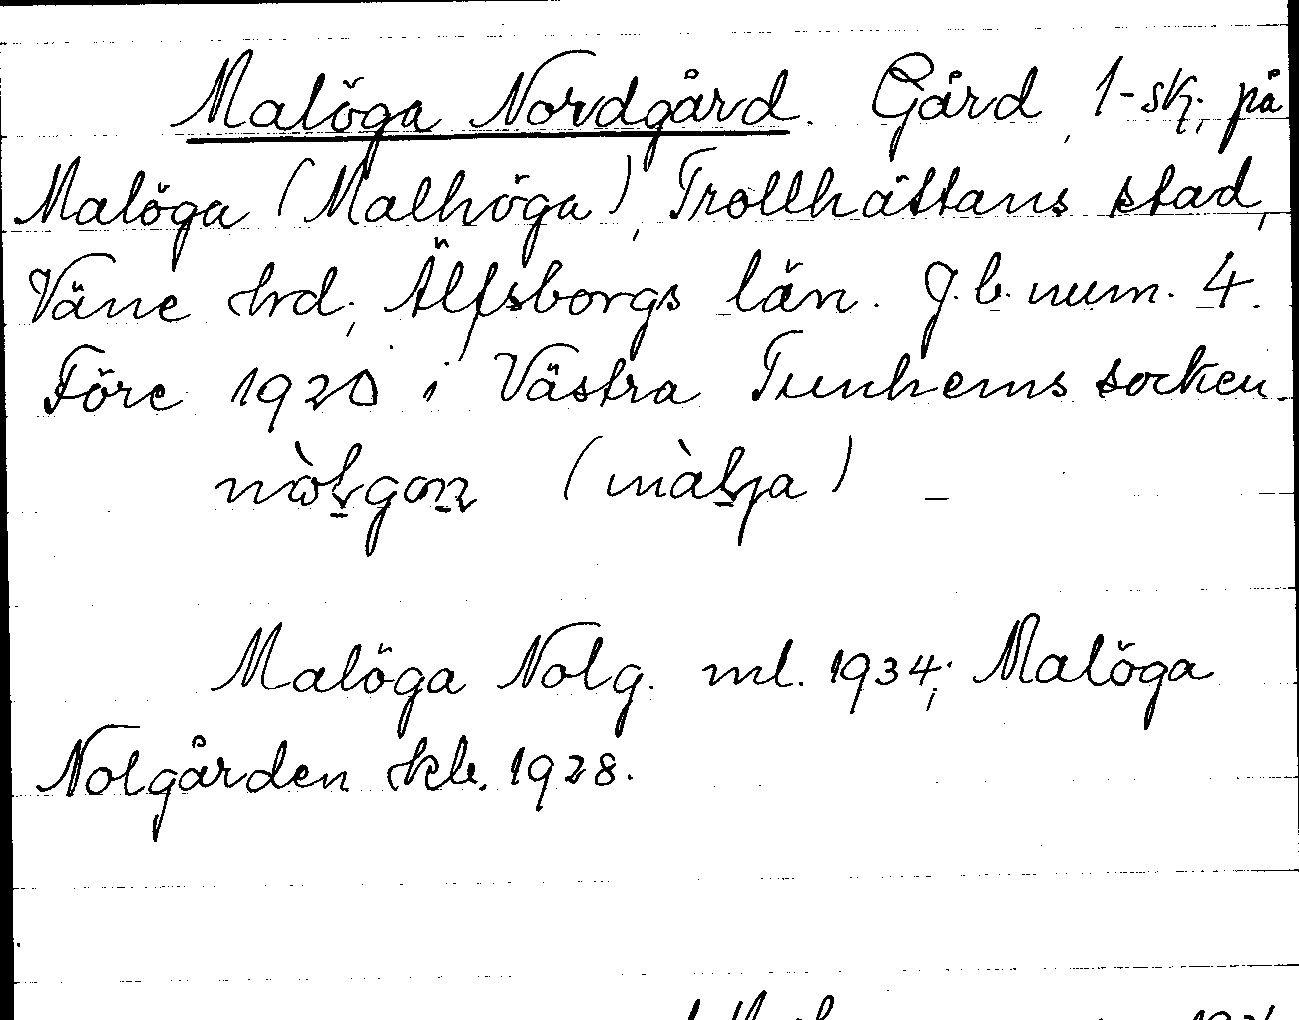 Malöga Nordgård. Gård, 1-sk., på
Malöga (Malhöga), Trollhättans stad,
Väne hrd, Älfsborgs län. J.b. num. 4.
Före 1920 i Västra Tunhems socken.
(màlja) –
Malöga Nolg. ml. 1934; Malöga
Nolgården kb. 1928.